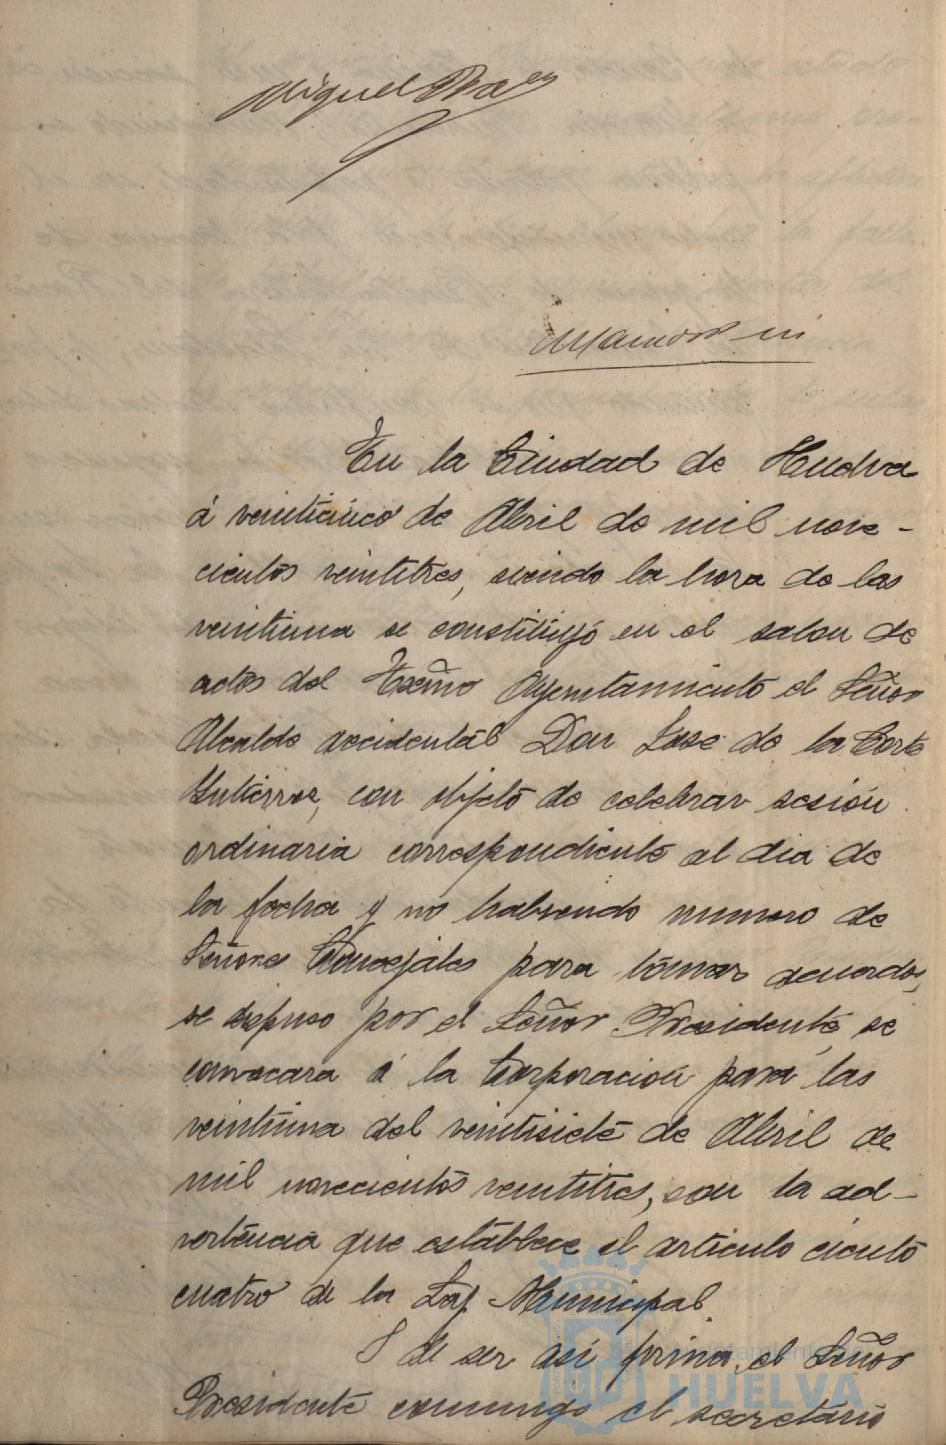 Miguel Baez
En la Ciudad de Huelva
á veinticinco de Abril de mil nove-
cientos veintitres, siendo la hora de las
veintiuna se constituyó en el salon de
actos del Excmo Ayuntamiento el Señor
Alcalde accidental Don José de la Corte
Gutierrez, con objeto de celebrar sesión
ordinaria correspondiente al dia de
la fecha y no habiendo numero de
Señores Concejales para tomar acuerdos,
se dispuso por el Señor Presidente, se
convocara á la Corporación para las
veintiuna del veintisiete de Abril de
mil novecientos veintitres, con la ad-
vertencia que establece el articulo ciento
cuatro de la Ley Municipal.
I de ser así firma el Señor
Presidente conmigo el secretario
Ayuntamiento de
HUELVA